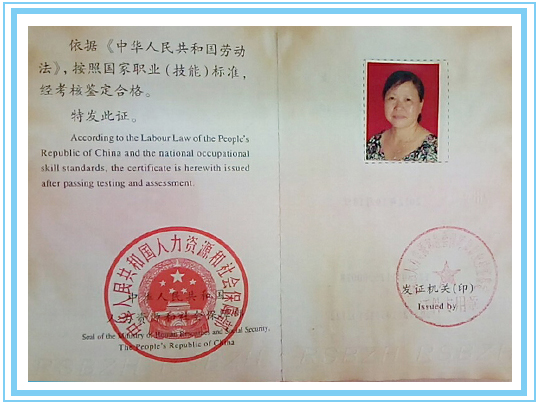 依据《中华人民共和国劳动
法》，按照国家职业（技能）标准，
经考核鉴定合格。
特发此证。
According to the Labour Law of the People's
Republic of China and the national occupational
skill standards, the certificate is herewith issued
after passing testing and assessment.
中华人民共和国人力资源和社会保障部
中华人民共和国
人力资源和社会保障部
Seal of the Ministry of Human Resources and Social Security,
The People's Republic of China
发证机关(印)
Issued by